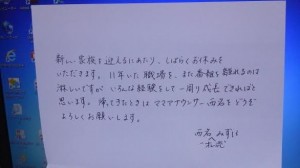 新しい家族を迎えるにあたり、しばらくお休みを
いただきます。11年いた職場を、また番組を離れるのは
淋しいですが いろんな経験をして一周り成長できればと
思います。帰ってきたときは ママアナウンサー西名をどうぞ
よろしくお願いします。
西名 みずほ